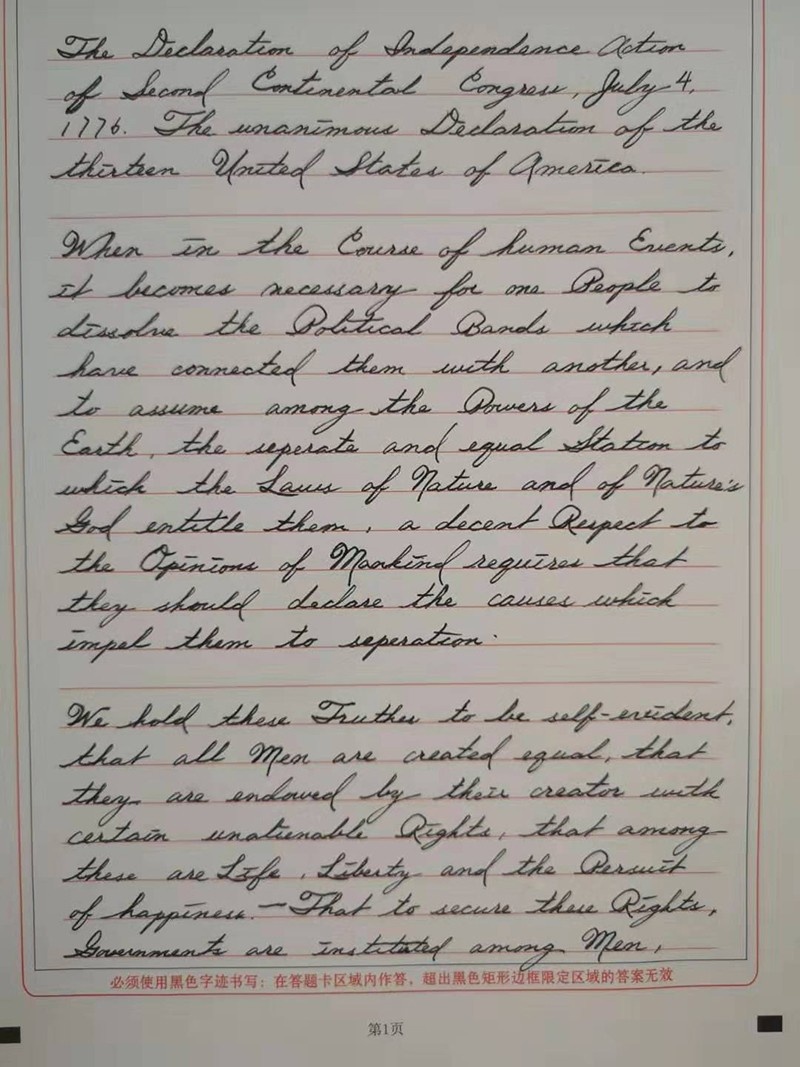 The Declaration of Independence Action
of Second Continental Congress, July 4,
1776. The unanimous Declaration of the
thirteen United States of America.
When in the Course of human Events,
it becomes necessary for one People to
dissolve the Political Bands which
have connected them with another, and
to assume among the Powers of the
Earth, the seperate and equal Station to
which the Laws of Nature and of Nature's
God entitle them, a decent Respect to
the Opinions of Mankind requires that
they should declare the causes which
impel them to seperation.
We hold these Truthes to be self-evident,
that all Men are created equal, that
they are endowed by their creator with
certain unalienable Rights, that among
these are Life, Liberty and the Persuit
of happiness.—That to secure these Rights,
Governments are instituted among Men,
必须使用黑色字迹书写；在答题卡区域内作答，超出黑色矩形边框限定区域的答案无效
第1页